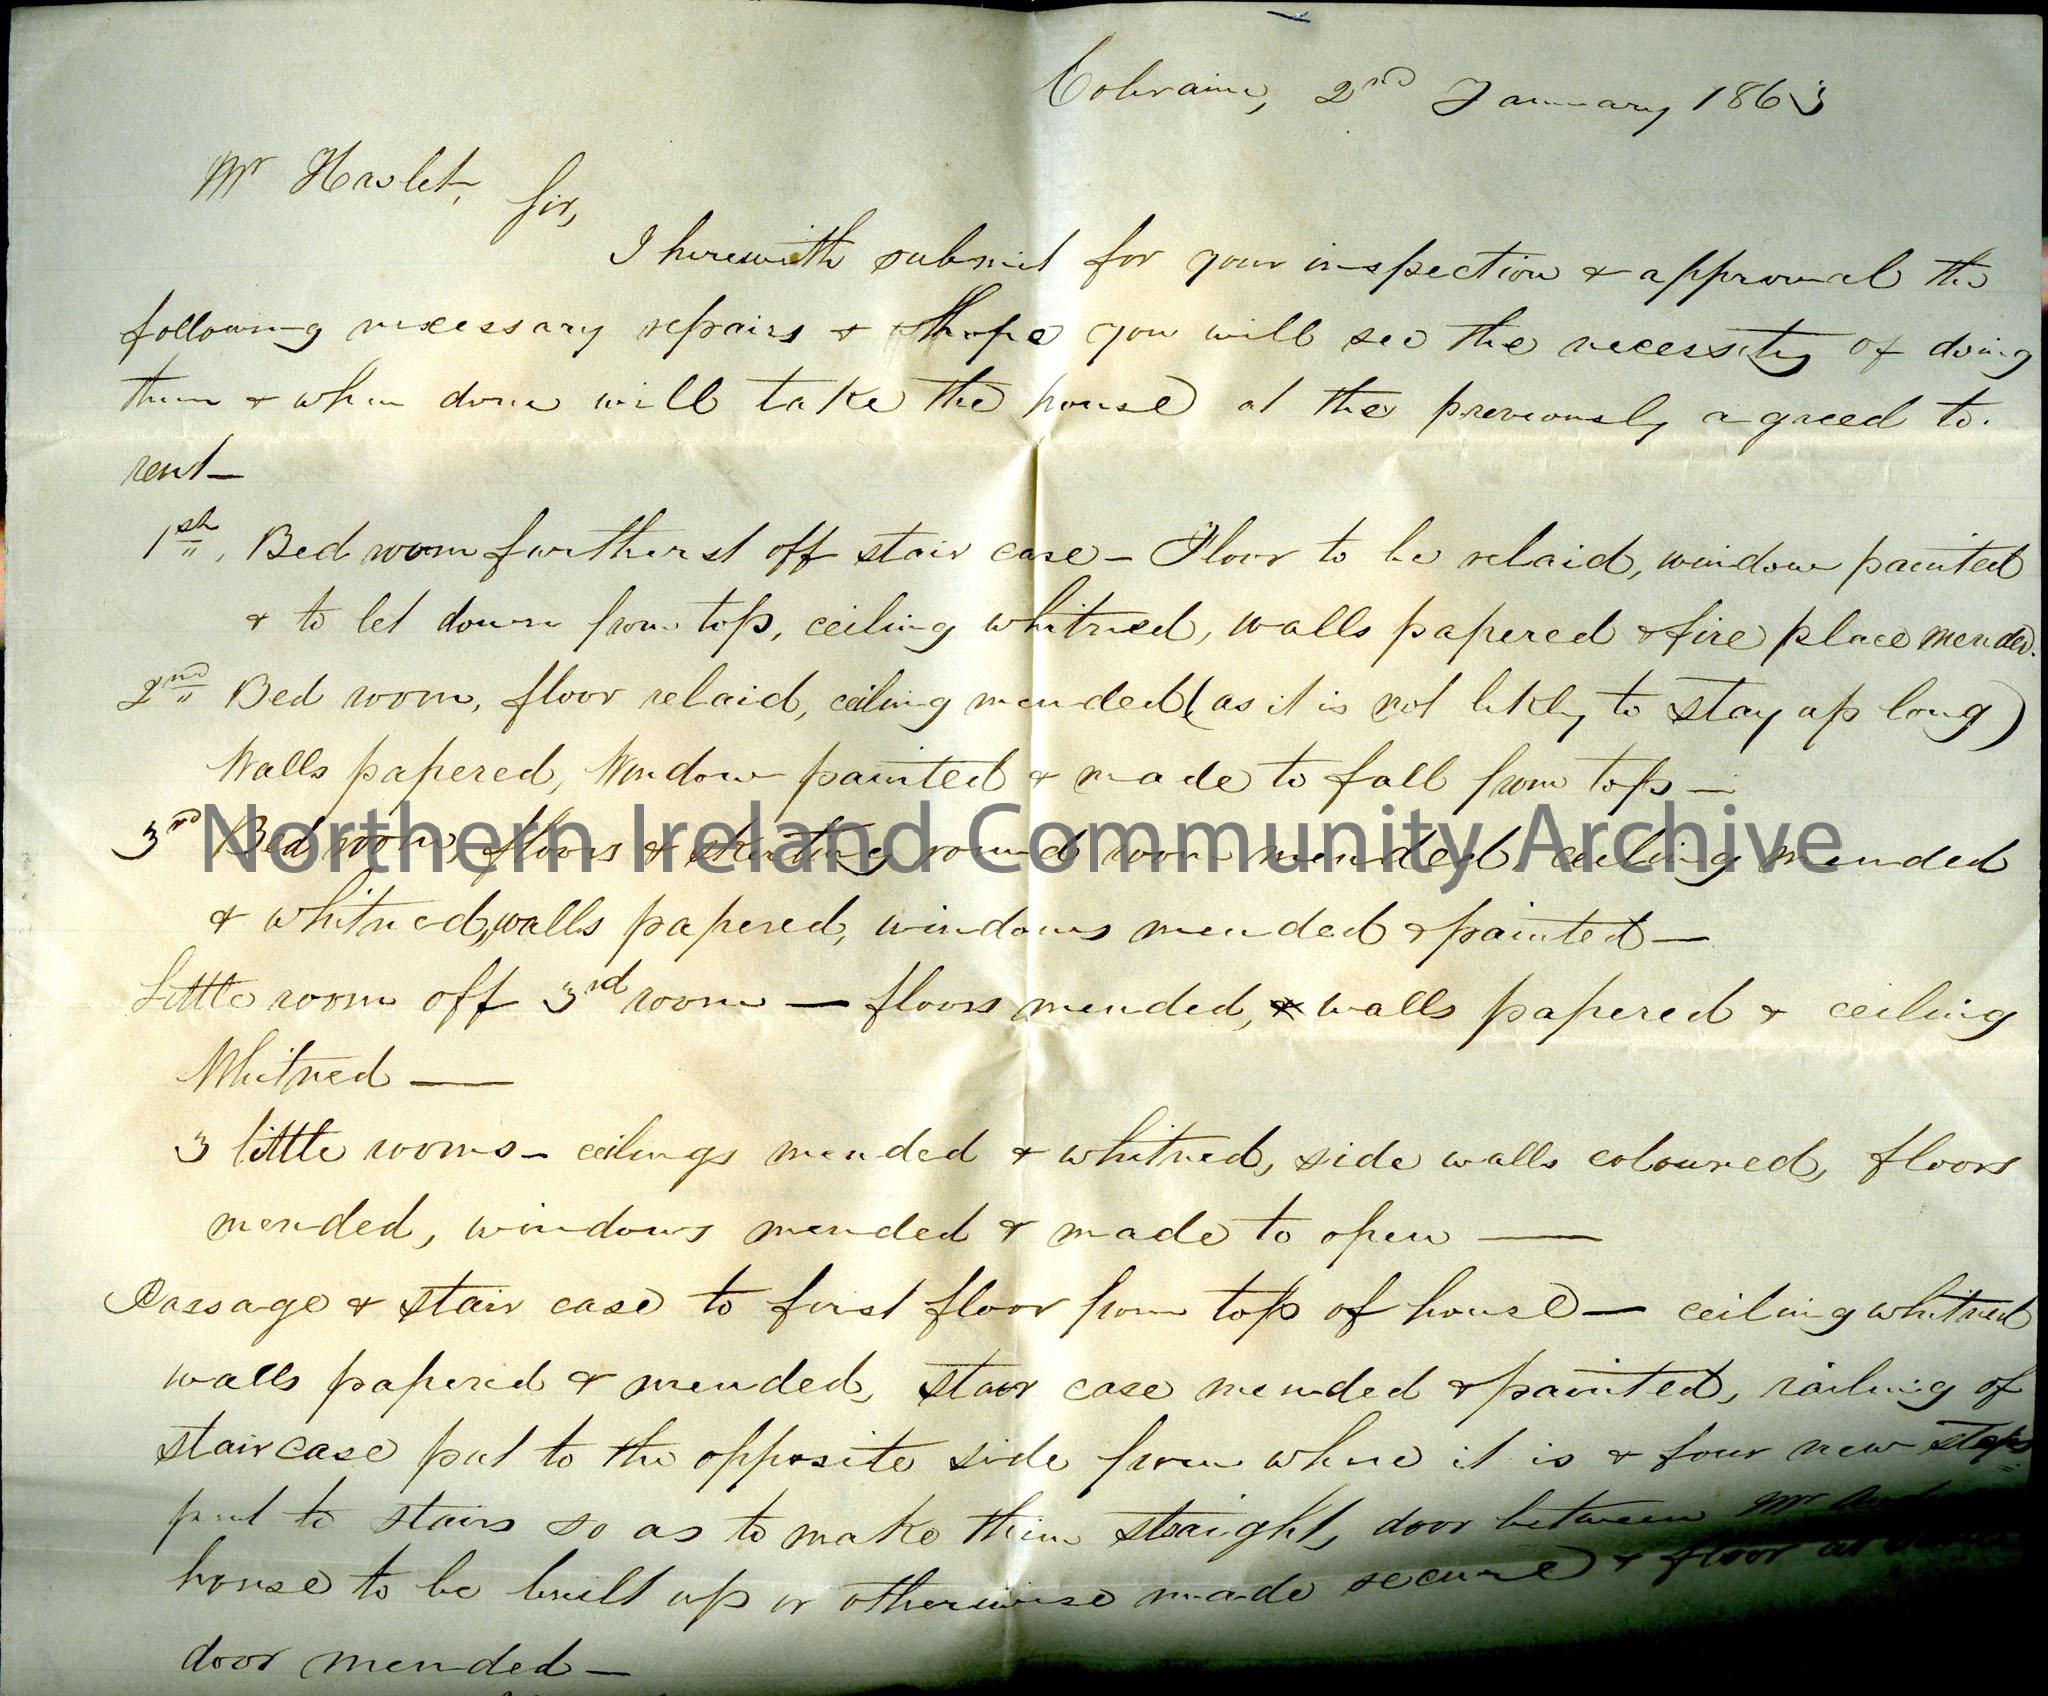 Coleraine, 2nd January 1863
Mr Hazlet, Sir,
I herewith submit for your inspection & approval the
following necessary repairs & hope you will see the necessity of doing
them & when done will take the house at the previously agreed to.
rent—
1st, Bed room furtherst off stair case – Floor to be relaid, window painted
& to let down from top, ceiling whitned, walls papered & fire place mended.
2nd Bed room, floor relaid, ceiling mended (as it is not likly to stay up long)
Walls papered, Window painted & made to fall from top —
3rd Bed room, floors & skirting round room mended, ceiling mended
Northern Ireland Community Archive
& whitned, walls papered, windows mended & painted —
Little room off 3rd room — floors mended, walls papered & ceiling
Whitned —
3 little rooms – ceilings mended & whitned, side walls coloured, floors
mended, windows mended & made to open —
Passage & stair case to first floor from top of house — ceiling whitned
walls papered & mended, stair case mended & painted, railing of
staircase put to the opposite side from where it is & four new steps
put to stairs so as to make them straight, door between Mr
house to be built up or otherwise made secure & floor at
door mended —